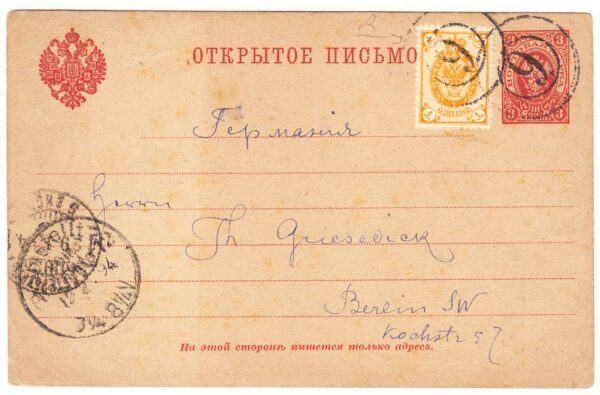 ОТКРЫТОЕ ПИСЬМО
1 1
ОДНА КОП.
1 1
6
6
3 3
3 3
Германія
Herrn
Th Griesedick
Berlin SW
Kochstr 57
На этой сторонѣ пишется только адресъ.